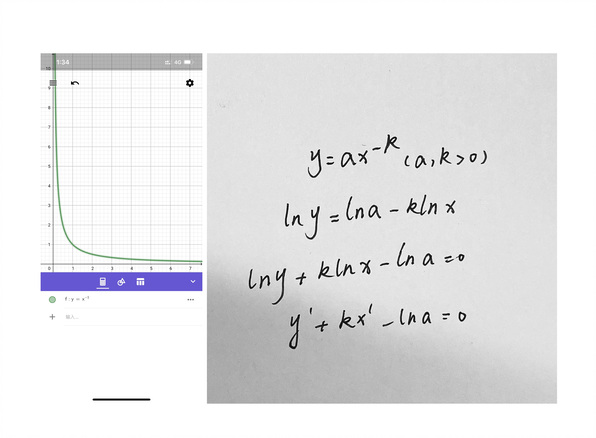 1:34
4G
10
9
8
7
6
5
4
3
2
1
0 1 2 3 4 5 6 7
f: y = x⁻¹
输入...
y = ax⁻ᵏ (a, k > 0)
ln y = ln a − k ln x
ln y + k ln x − ln a = 0
y' + kx' − ln a = 0